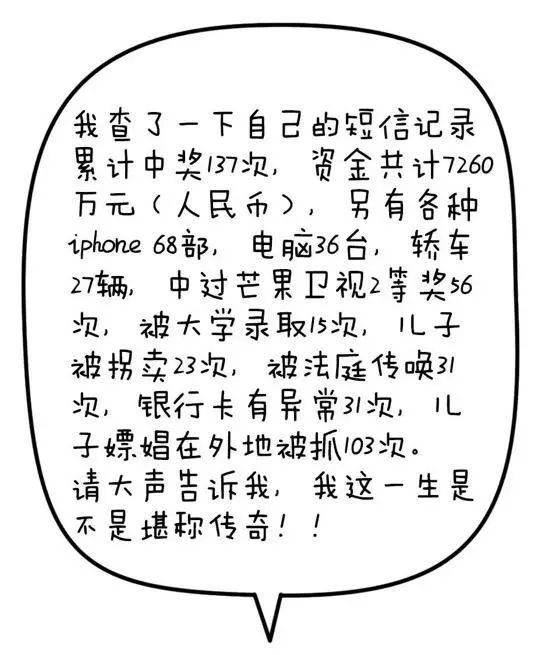 我查了一下自己的短信记录
累计中奖137次，资金共计7260
万元（人民币），另有各种
iphone 68部，电脑36台，轿车
27辆，中过芒果卫视2等奖56
次，被大学录取15次，儿子
被拐卖23次，被法庭传唤31
次，银行卡有异常31次，儿
子嫖娼在外地被抓103次。
请大声告诉我，我这一生是
不是堪称传奇！！